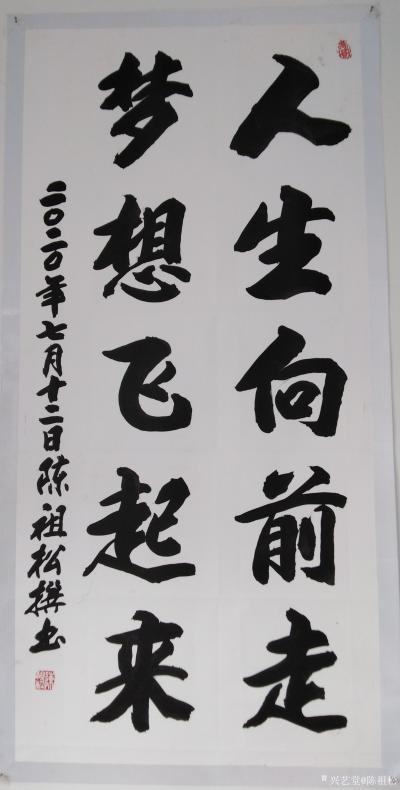 人生向前走
梦想飞起来
二〇二〇年七月十二日陈祖松撰书
兴艺堂@陈祖松